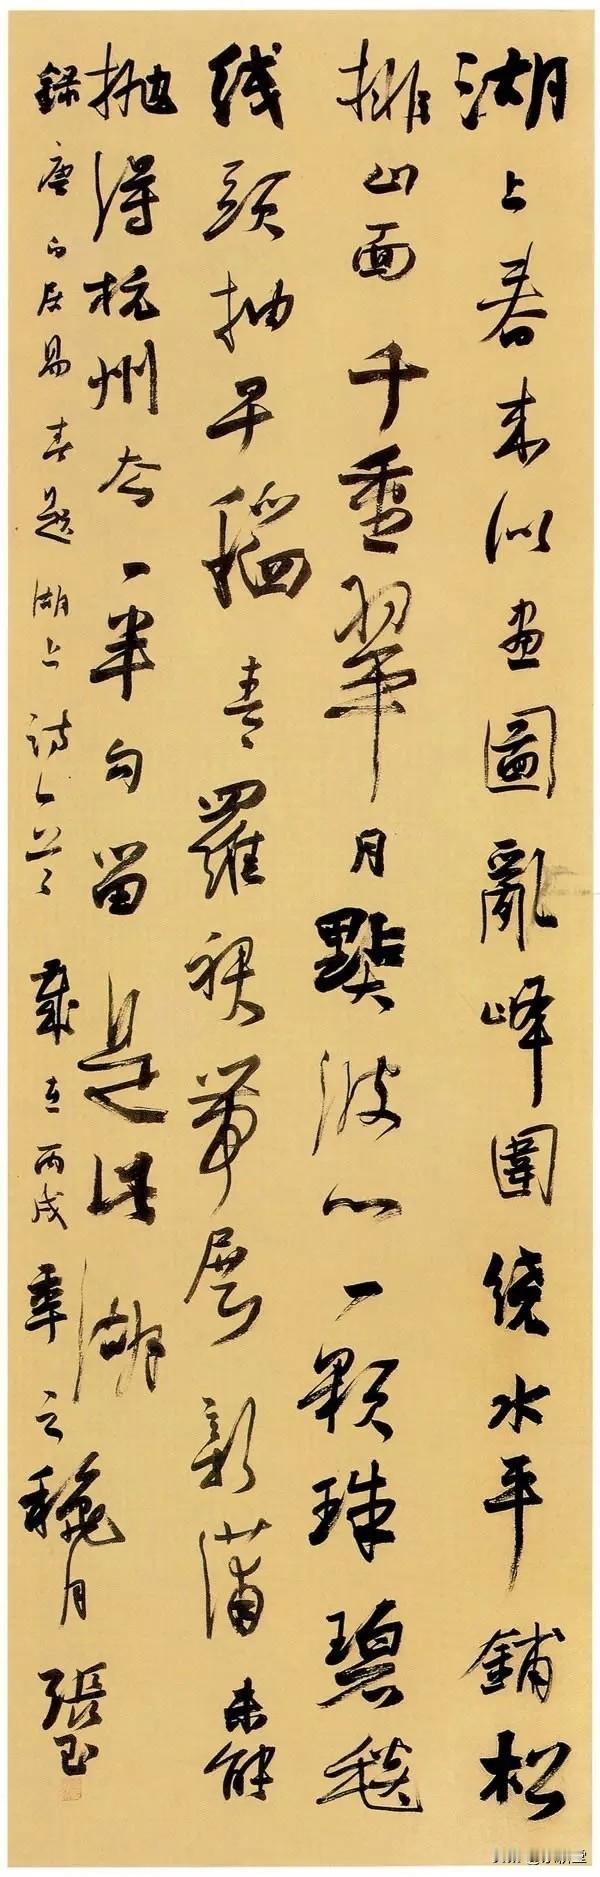 湖上春来似画圖亂峰圍绕水平鋪松
排山面千重翠月點波心一颗珠碧毯
线頭抽早稻青羅裙帶展新蒲未能
抛得杭州去一半勾留是此湖
録唐白居易春題湖上詩一首 歲在丙戌年之穐月 張